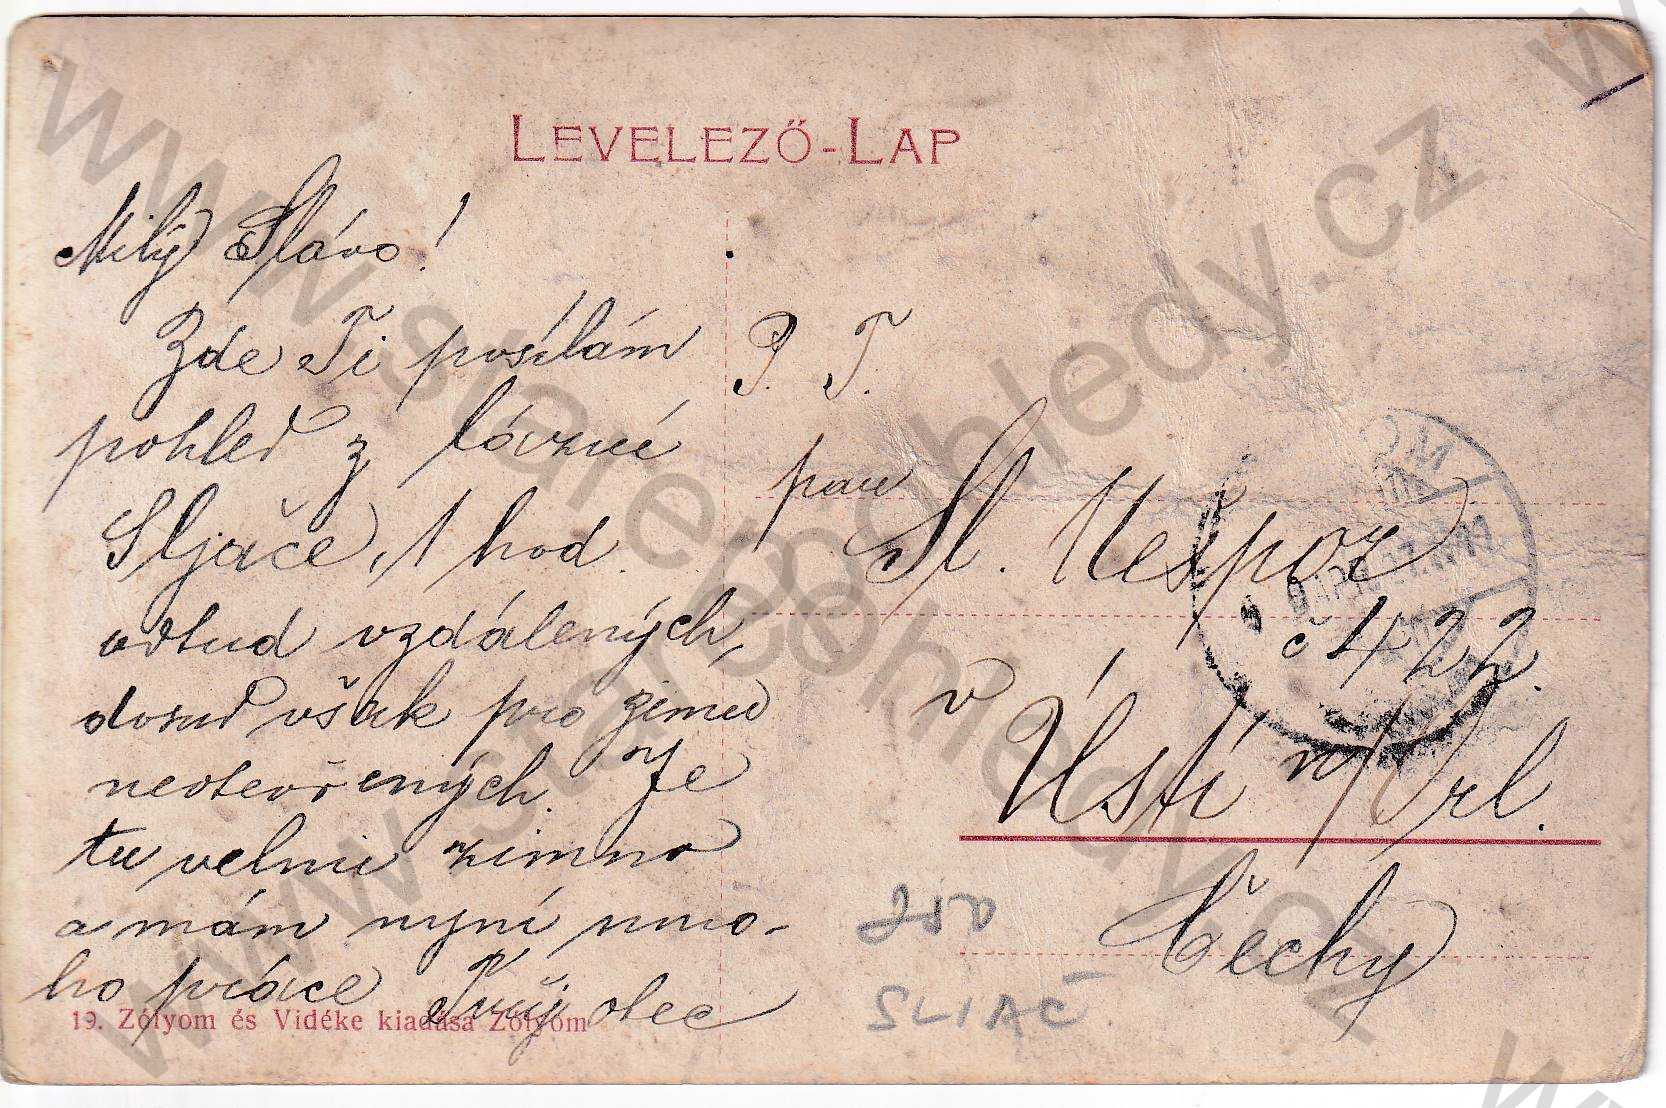 LEVELEZŐ-LAP
Milý Slávo!
Zde Ti posílám
pohled z lázní
Sljače, 1 hod.
odtud vzdálených,
dosud však pro zimu
neotevřených. Je
tu velmi zimno
a mám nyní mno-
ho práce Tvůj otec
19. Zólyom és Vidéke kiadása Zólyom
P. T.
pan
Sl. Nespor
č 422.
v Ústí n/Orl.
Čechy
250
SLIAČ
www.starepohledy.cz
www.starepohledy.cz